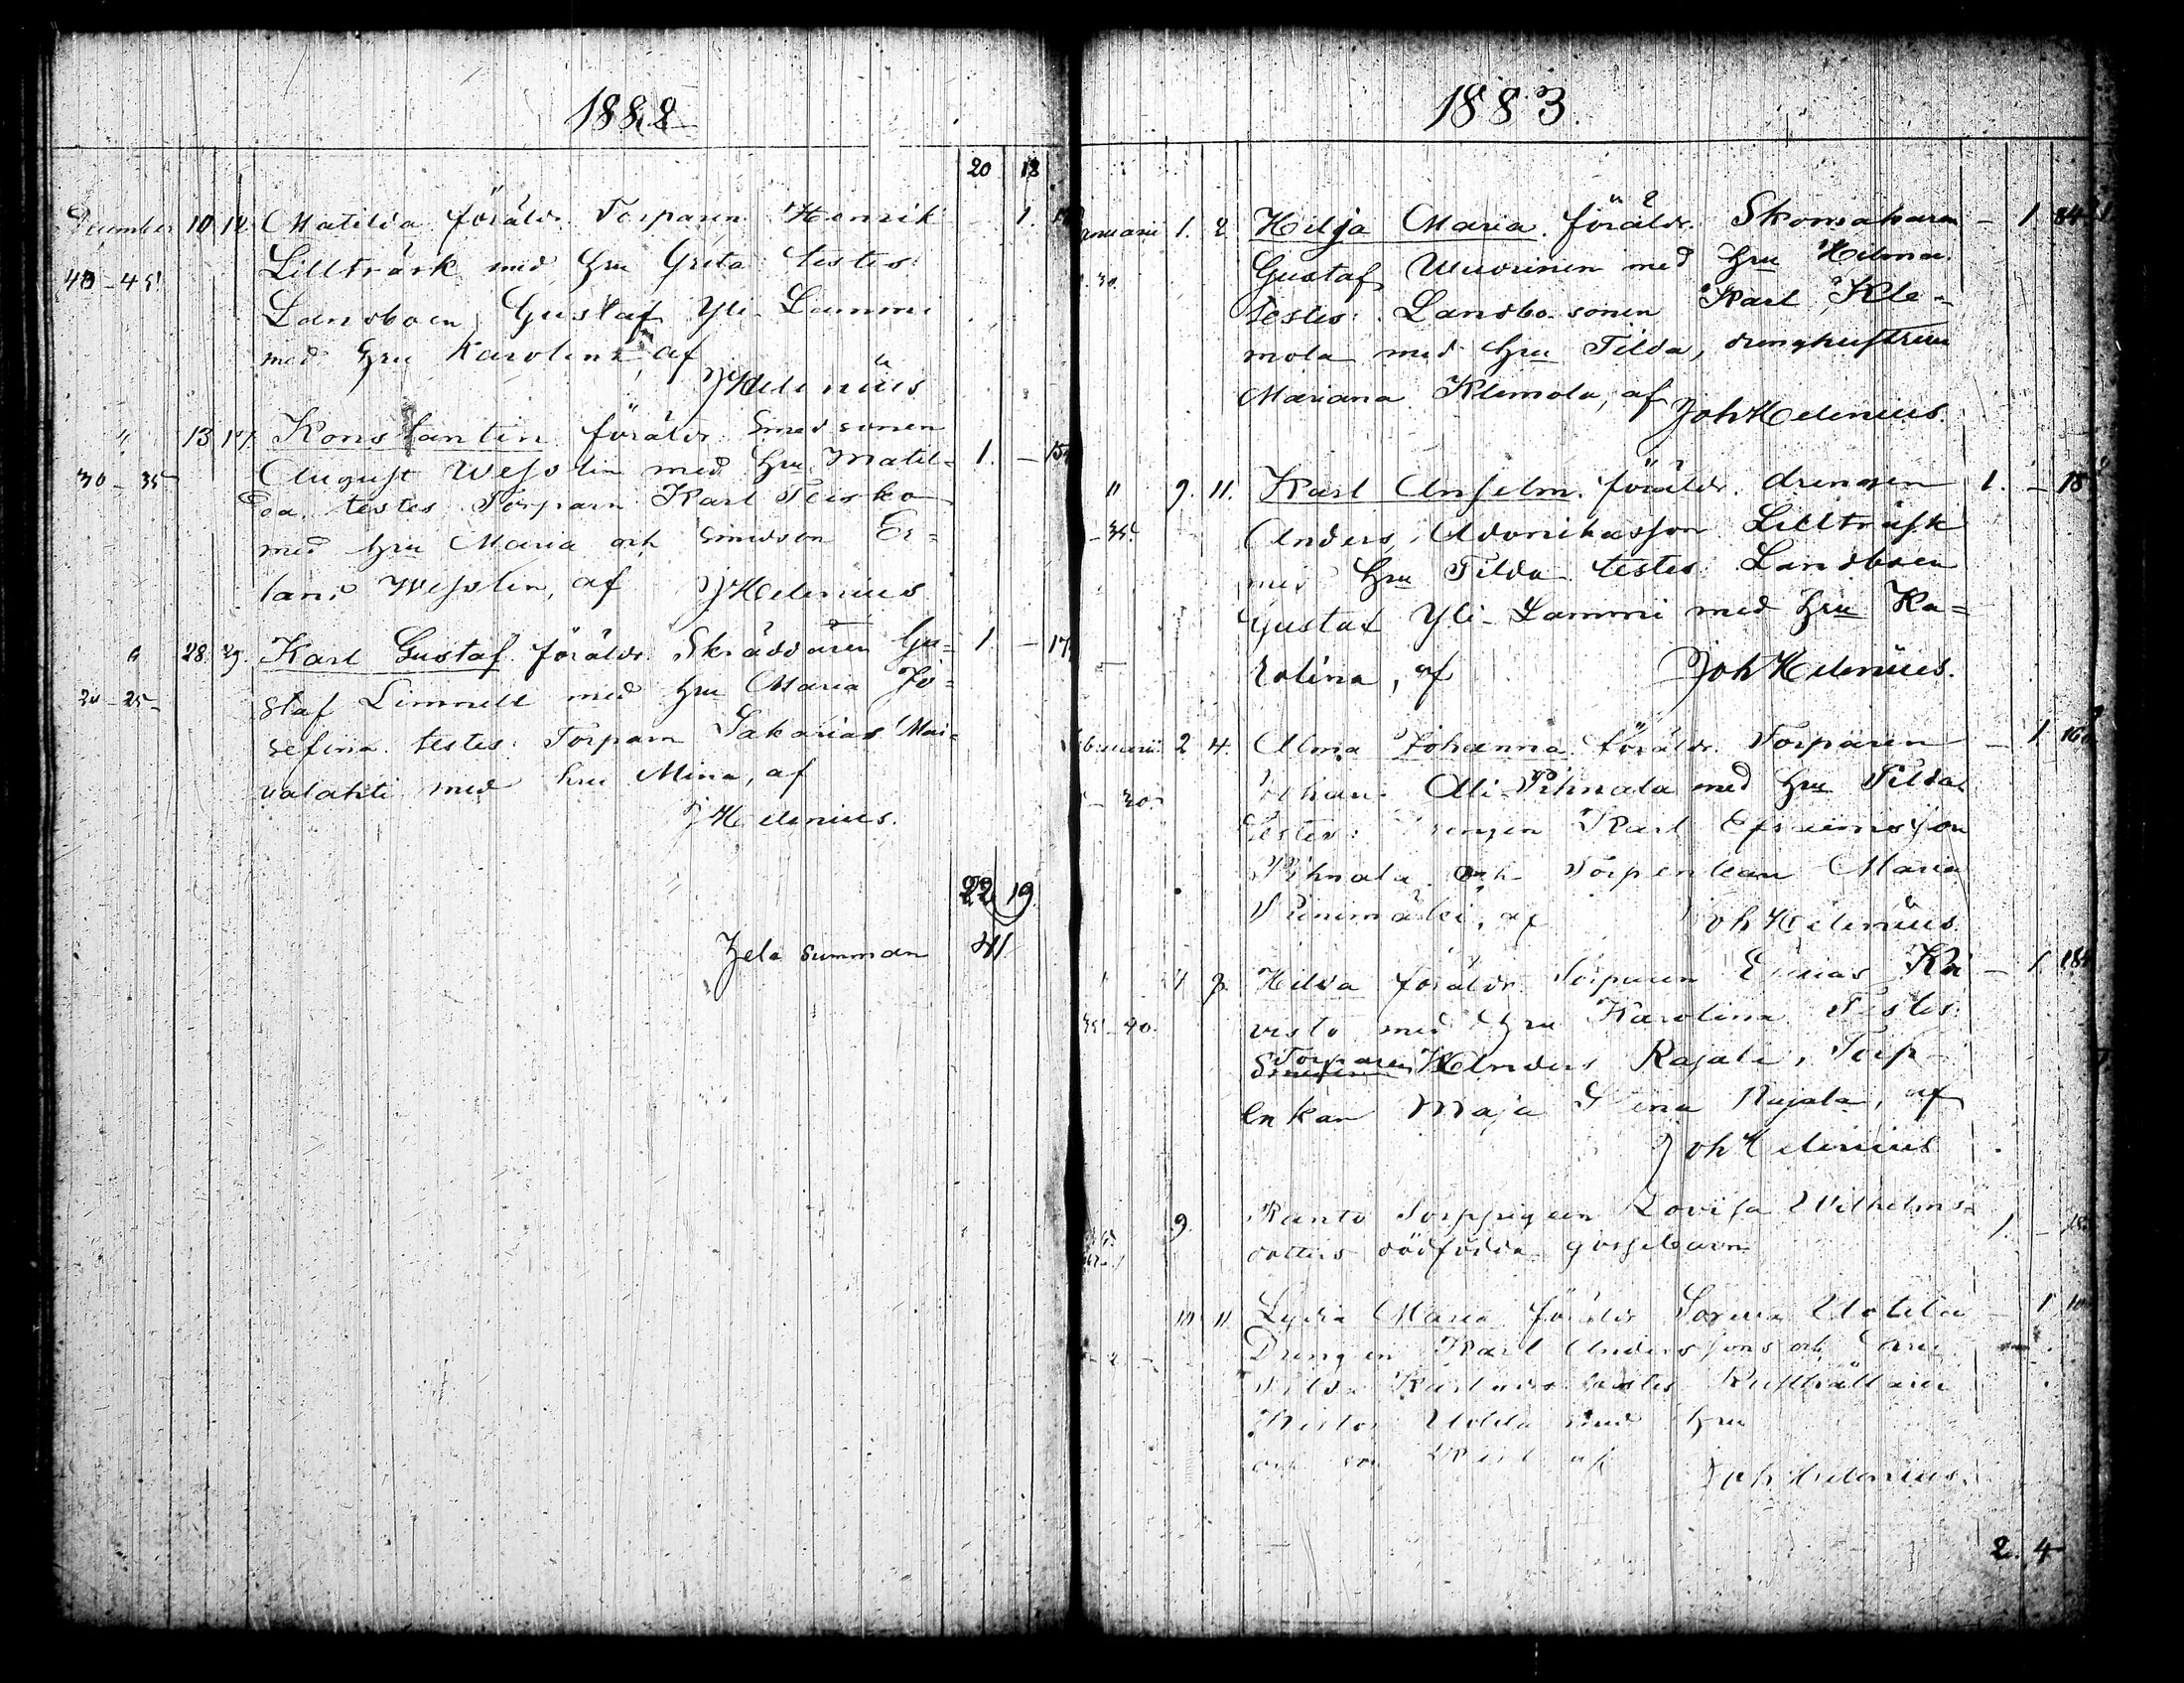 1882
20 18
December 10 12 Matilda föräldr. Torparen Henrik 1.
40-45 Lillträsk med hru Greta testes:
Landboen Gustaf Yli-Lammi
med hru Karolina, af
JHelenius
" 13 17 Konstantin föräldr. Smedsonen
30-35 August Wesslin med hru Matil= 1. —
da. testes Torparn Karl Teisko
med hru Maria och Smedson Er=
land Wesslin, af JHelenius
" 28. 29. Karl Gustaf. föräldr. Skräddaren Gu= 1. — 17
20-25 staf Limnell med hru Maria Jo=
sefina. testes: Torparn Sakarias Mai=
valahti med hru Mina, af
JHelenius.
22 19
Hela summan 41
1883.
1. 2 Hilja Maria. föräldr. Skomakaren — 1. 84
30. Gustaf Wuorinen med hru Hilma.
testes: Landbo-sonen Karl Kle=
mola med hru Tilda, drenghustrun
Mariana Klemola, af
Joh Helenius.
" 9. 11. Karl Anselm. föräldr. drengen 1. — 18
-35 Anders Advonikasson Lillträsk
med hru Tilda testes: Landboen
Gustaf Yli-Lammi med hru Ka=
rolina, af Joh Helenius.
2 4. Alma Johanna föräldr. Torparen — 1
-30. Johan Ali-Pihnala med hru Tilda
testes: Drengen Karl Efraimsson
Pihnala och Torpenkan Maria
af Joh Helenius.
4 7. Hilda föräldr. Torparen Ko — 1. 184
35-40. visto med hru Karolina. Testes:
Torparen
Smeden Anders Rajala, Torp
enkan Maja Rajala, af
Joh Helenius
9. Lovisa Wilhelms= 1. —
dotters dödfödda gossebarn
10 11 Lydia Maria föräldr. Uotila — 1
Drengen Karl Anderssons och
Tilda testes Rusthållaren
Uotila med hru
och af Joh Helenius.
2. 4